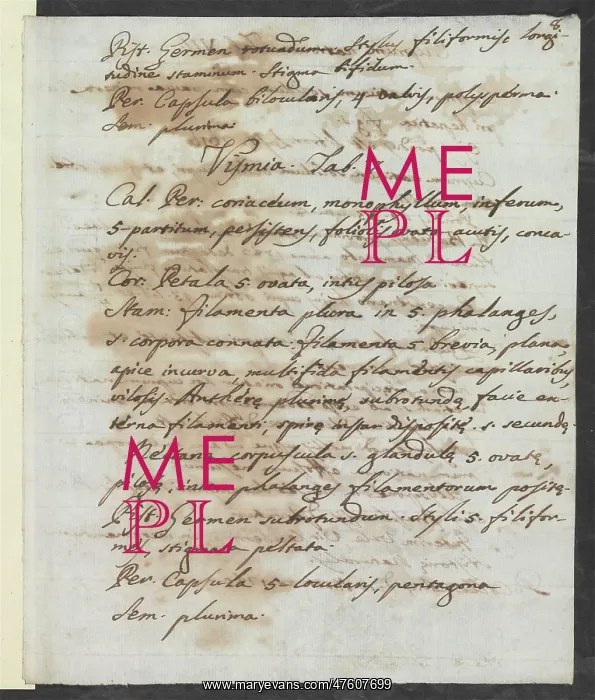 8
Pist. Germen rotundum. Stylus filiformis longi-
tudine staminum. Stigma bifidum.
Per. Capsula bilocularis, 4 valvis, polysperma.
Sem. plurima.
Vismia. Tab.
Cal. Per: coriaceum, monophyllum inferum,
5-partitum, persistens, foliolis ovato acutis, conca-
vis.
Cor: Petala 5. ovata, intus pilosa
Stam: filamenta plura in 5. phalanges,
s. corpora connata. filamenta 5 brevia, plana
apice incurva, multifida filamentis capillaribus,
vilosis. Antherę plurimę, subrotundę facie ex-
terna filamenti. spirę instar dispositę. s. secundę.
corpuscula s. glandulę 5. ovatę,
pilosę, phalanges filamentorum positę.
Pist: Germen subrotundum. Styli 5. filifor-
mes, stigmata peltata
Per. Capsula 5-locularis, pentagona
Sem. plurima.
ME
PL
ME
PL
www.maryevans.com/47607699